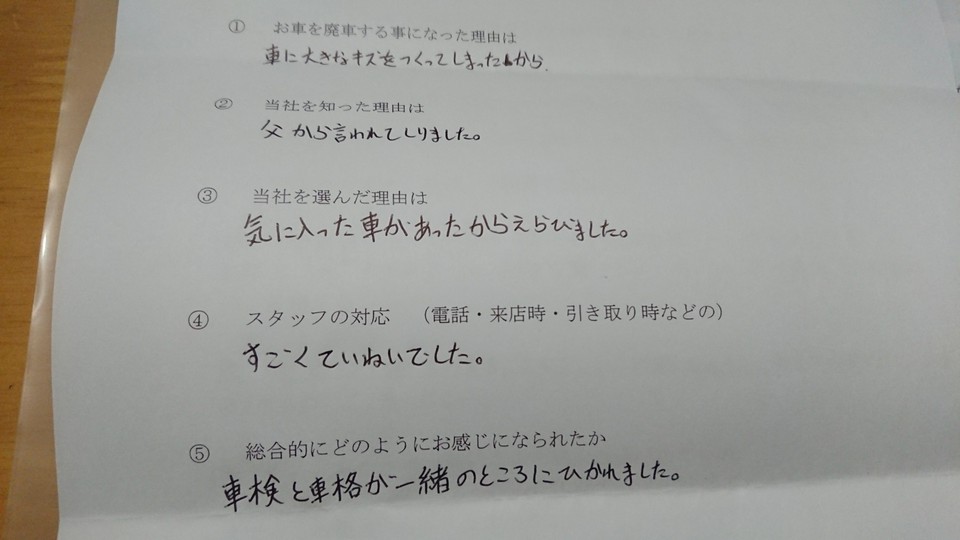 ① お車を廃車する事になった理由は
車に大きなキズをつくってしまったから.
② 当社を知った理由は
父から言われてしりました。
③ 当社を選んだ理由は
気に入った車があったからえらびました。
④ スタッフの対応 （電話・来店時・引き取り時などの）
すごくていねいでした。
⑤ 総合的にどのようにお感じになられたか
車検と車格が一緒のところにひかれました。